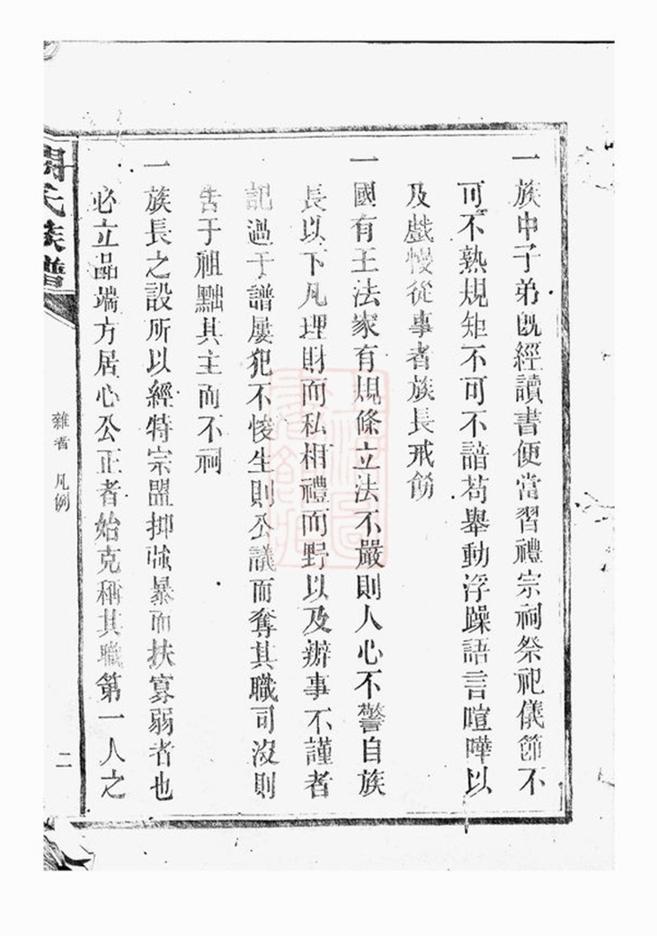 一族中子弟旣經讀書便當習禮宗祠祭祀儀節不
可不熟規矩不可不諳苟舉動浮躁語言喧嘩以
及戲慢從事者族長戒飭
一國有王法家有規條立法不嚴則人心不警自族
長以下凡理財而私相禮而野以及辦事不謹者
記過于譜屢犯不悛生則公議而奪其職司沒則
告于祖黜其主而不祠
一族長之設所以經特宗盟抑強暴而扶寡弱者也
必立品端方居心公正者始克稱其職第一人之
氏族譜
雜著 凡例
二